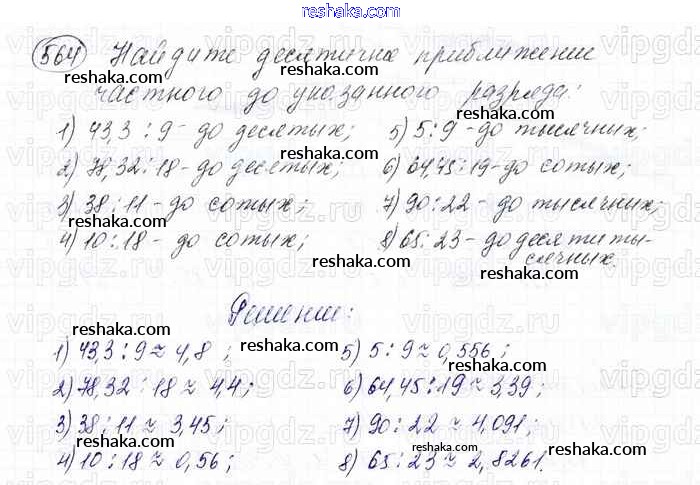 reshaka.com
564 Найдите десятичное приближение
reshaka.com
частного до указанного разряда:
reshaka.com
1) 43,3 : 9 - до десятых; 5) 5 : 9 - до тысячных;
reshaka.com reshaka.com
2) 78,32 : 18 - до десятых; 6) 64,45 : 19 - до сотых;
reshaka.com reshaka.com
3) 38 : 11 - до сотых; 7) 90 : 22 - до тысячных;
reshaka.com reshaka.com
4) 10 : 18 - до сотых; 8) 65 : 23 - до десятиты-
reshaka.com reshaka.com
сячных.
Решение:
reshaka.com
1) 43,3 : 9 ≈ 4,8; 5) 5 : 9 ≈ 0,556;
reshaka.com reshaka.com
2) 78,32 : 18 ≈ 4,4; 6) 64,45 : 19 ≈ 3,39;
reshaka.com reshaka.com
3) 38 : 11 ≈ 3,45; 7) 90 : 22 ≈ 4,091;
reshaka.com reshaka.com
4) 10 : 18 ≈ 0,56; 8) 65 : 23 ≈ 2,8261.
reshaka.com reshaka.com